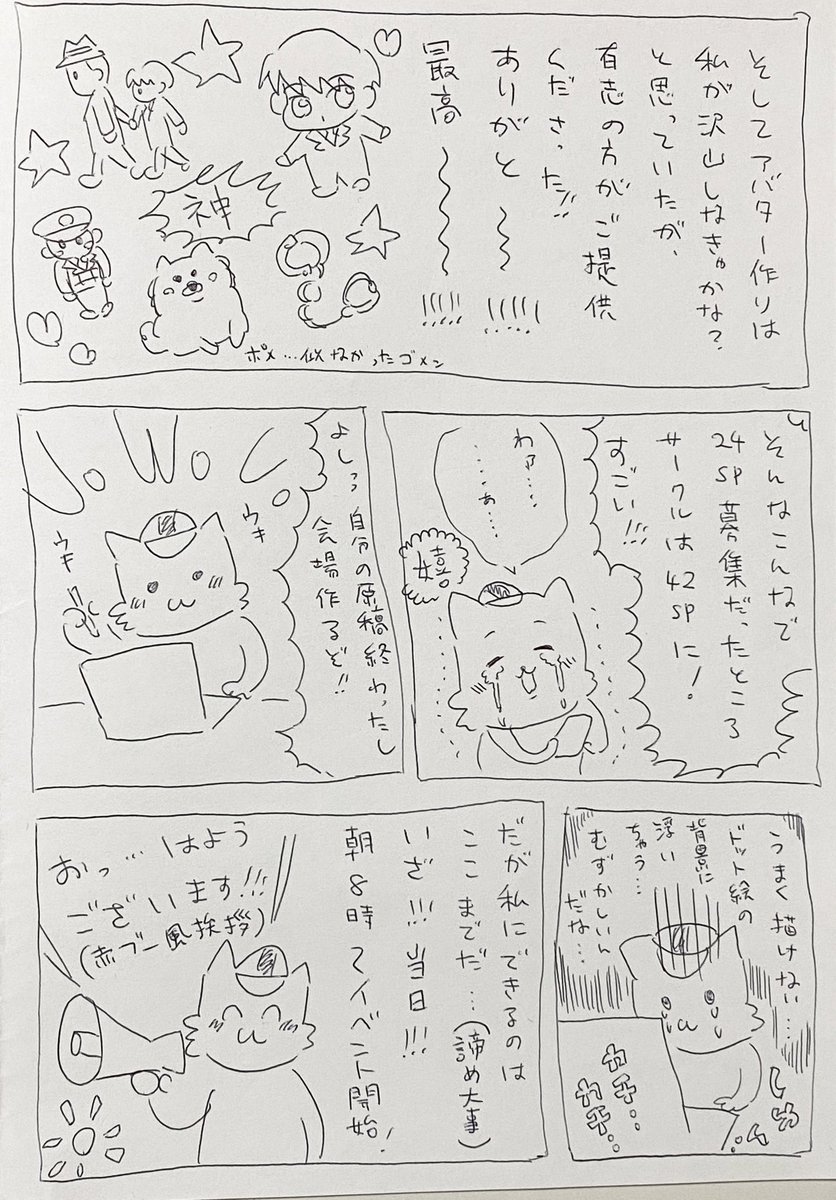 そしてアバター作りは
私が沢山しなきゃかな?
と思っていたが、
有志の方がご提供
くださった!!
ありがと〜〜!!!!!
最高〜〜〜〜!!!!!
神
ポメ…似なかったゴメン
そんなこんなで
24SP募集だったところ
サークルは42SPに!
すごい!!!
わァ……
……ぁ…
嬉
よしっ自分の原稿終わったし
会場作るぞ!!
ウキ
ウキ
うまく描けない…
ドット絵の
背景に
浮い
ちゃう…
むずかしいん
だな…
カチ…
カチ…
だが私にできるのは
ここまでだ…(諦め大事)
いざ!!!当日!!!
朝8時でイベント開始!
おっ…はよう
ございます!!!
(赤ブー風挨拶)